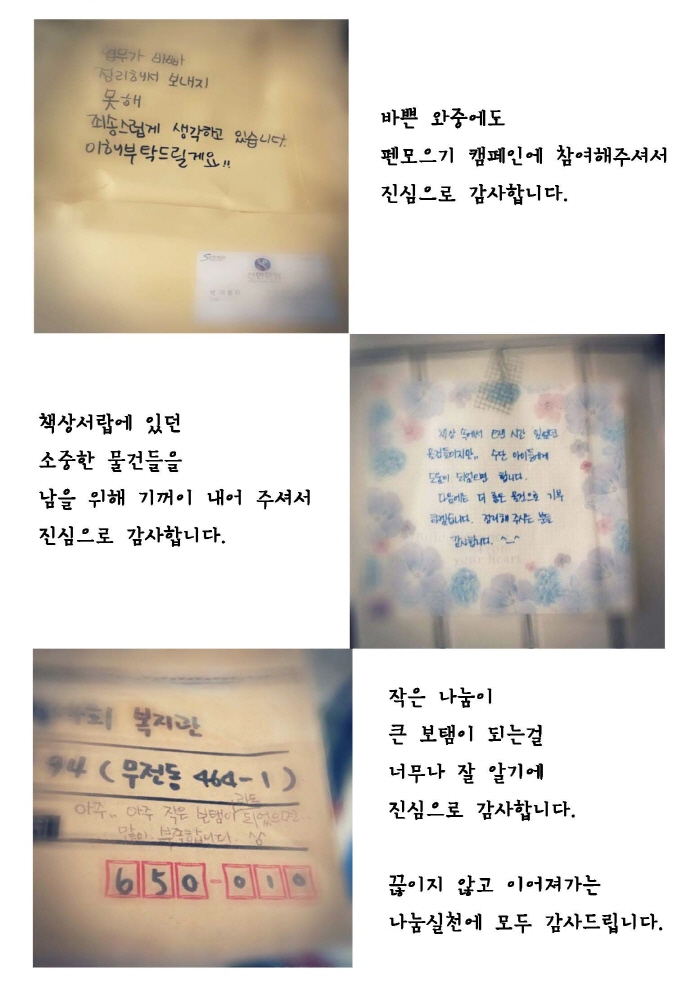 업무가 바빠
정리해서 보내지
못해
죄송스럽게 생각하고 있습니다.
이해부탁드릴게요!!
바쁜 와중에도
펜모으기 캠페인에 참여해주셔서
진심으로 감사합니다.
책상서랍에 있던
소중한 물건들을
남을 위해 기꺼이 내어 주셔서
진심으로 감사합니다.
책상 속에서 오랜 시간 있었던
물건들이지만,, 수단 아이들에게
도움이 되었으면 합니다.
다음에는 더 좋은 물건으로 기부
하겠습니다. 정리해 주시는 분들
감사합니다. ^_^
your heart
작은 나눔이
큰 보탬이 되는걸
너무나 잘 알기에
진심으로 감사합니다.
끊이지 않고 이어져가는
나눔실천에 모두 감사드립니다.
복지관
94 (무전동 464-1)
아주,, 아주 작은 보탬이 되었으면..
많이 부족합니다.
650-010